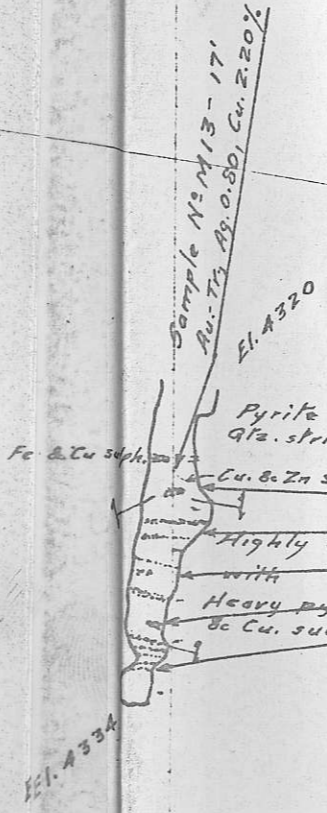 Sample Nº M13 - 17'
Au.- Tr, Ag. 0.80, Cu. 2.20%
El. 4320
Pyrite
Qtz.
Fe & Cu sulph.
Cu. & Zn
Highly
with
Heavy
& Cu.
El. 4334